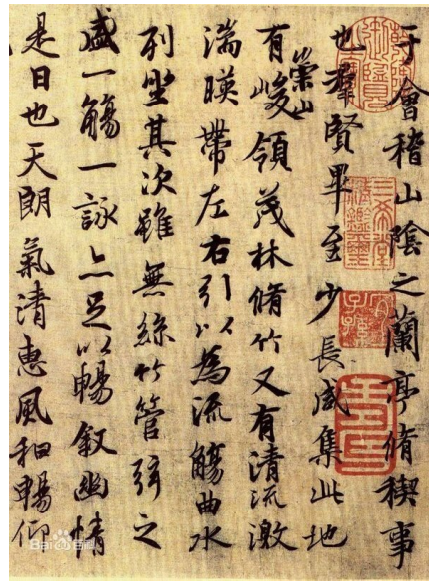 于會稽山陰之蘭亭脩稧事
也羣賢畢至少長咸集此地
有崇山峻領茂林脩竹又有清流激
湍暎帶左右引以為流觴曲水
列坐其次雖無絲竹管弦之
盛一觴一詠亦足以暢敘幽情
是日也天朗氣清惠風和暢仰
三希堂精鑑璽
宜子孫
Bai百科